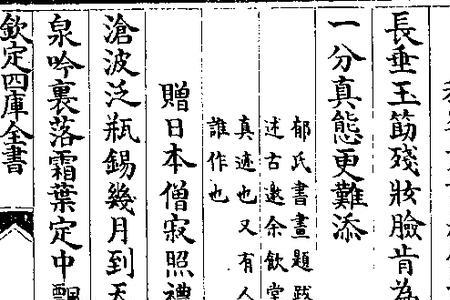 長垂玉筯殘妝臉肯為
一分真態更難添
郁氏書畫題跋
述古邀余飲堂
真迹也又有人
誰作也
贈日本僧寂照禮
滄波泛瓶錫幾月到天
泉吟裏落霜葉定中
欽定四庫全書